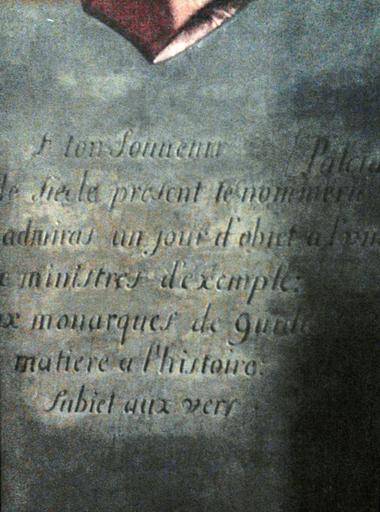 ton Souuenir
siecle present te
admiras un jour d'obiet a l'
ministres d'exemple:
monarques de guide
matiere a l'histoire:
subiet aux vers